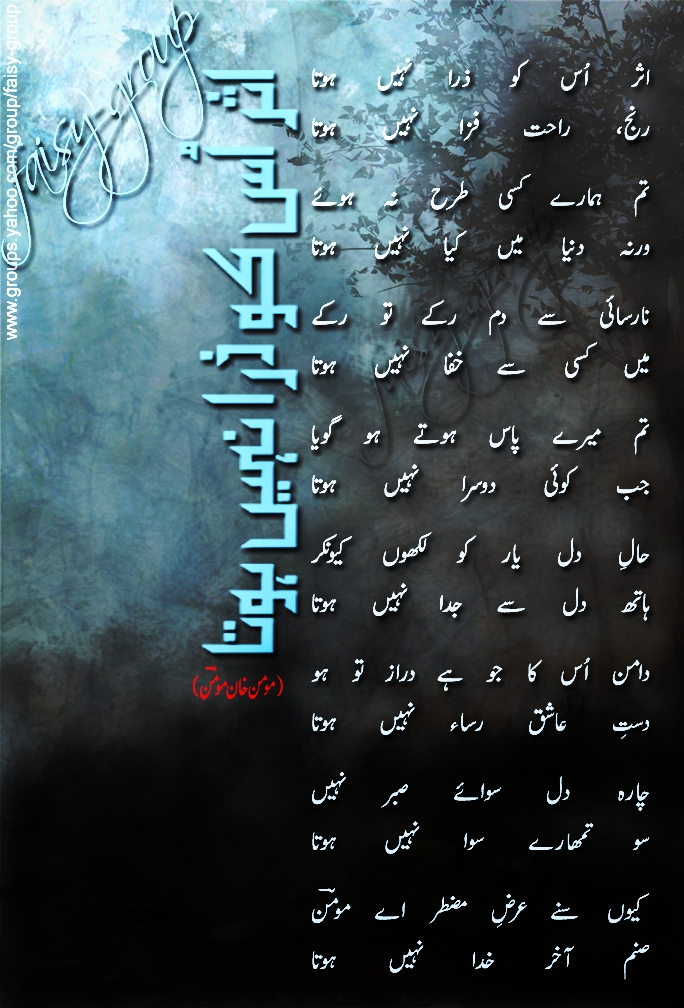 اثر اُس کو ذرا نہیں ہوتا
(مومن خان مومنؔ)
اثر اُس کو ذرا نہیں ہوتا
رنج، راحت فزا نہیں ہوتا
تم ہمارے کسی طرح نہ ہوئے
ورنہ دنیا میں کیا نہیں ہوتا
نارسائی سے دم رکے تو رکے
میں کسی سے خفا نہیں ہوتا
تم میرے پاس ہوتے ہو گویا
جب کوئی دوسرا نہیں ہوتا
حالِ دل یار کو لکھوں کیونکر
ہاتھ دل سے جدا نہیں ہوتا
دامن اُس کا جو ہے دراز تو ہو
دستِ عاشق رساء نہیں ہوتا
چارہ دل سوائے صبر نہیں
سو تمھارے سوا نہیں ہوتا
کیوں سنے عرضِ مضطر اے مومنؔ
صنم آخر خدا نہیں ہوتا
faisy-group
www.groups.yahoo.com/group/faisy-group